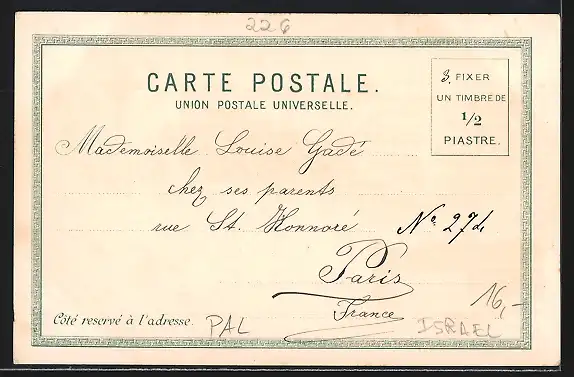 226
CARTE POSTALE.
UNION POSTALE UNIVERSELLE.
FIXER
UN TIMBRE DE
1/2
PIASTRE.
Mademoiselle Louise Gadé
chez ses parents
rue St. Honnoré
Paris
France
16,-
Côté reservé à l'adresse.
PAL
ISRAEL